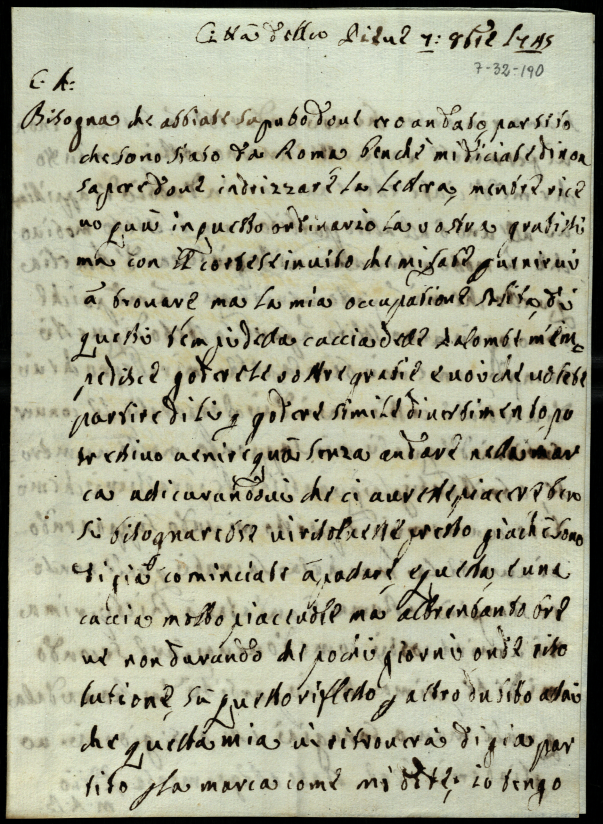 Città della Pieve 7: 8bre 1745
7-32-190
C. A:
Bisogna che abbiate saputo dove ero andato, partito
che sono stato da Roma benche mi diciate di non
sapere dove indrizzare la lettera, mentre rice
vo qua in questo ordinario la vostra gratissi
ma con il cortese invito che mi fate per venirvi
a trovare ma la mia occupatione solita di
questi tempi della caccia delle Palombe m'im
pedisce godere le vostre gratie e voi che volete
partire di li per godere simile divertimento po
tressivo venire qua senza andare nella mar
ca assicurandovi che ci avreste piacere ben
si bisognarebbe vi risolveste presto giache sono
di gia cominciate a passare, e questa e una
caccia molto piacevole ma altrentanto bre
ve non durando che pochi giorni onde riso
lutione, su questo rifflesso per altro dubito assai
che questa mia vi ritrovera di gia par
tito per la marca come mi dite, io tengo